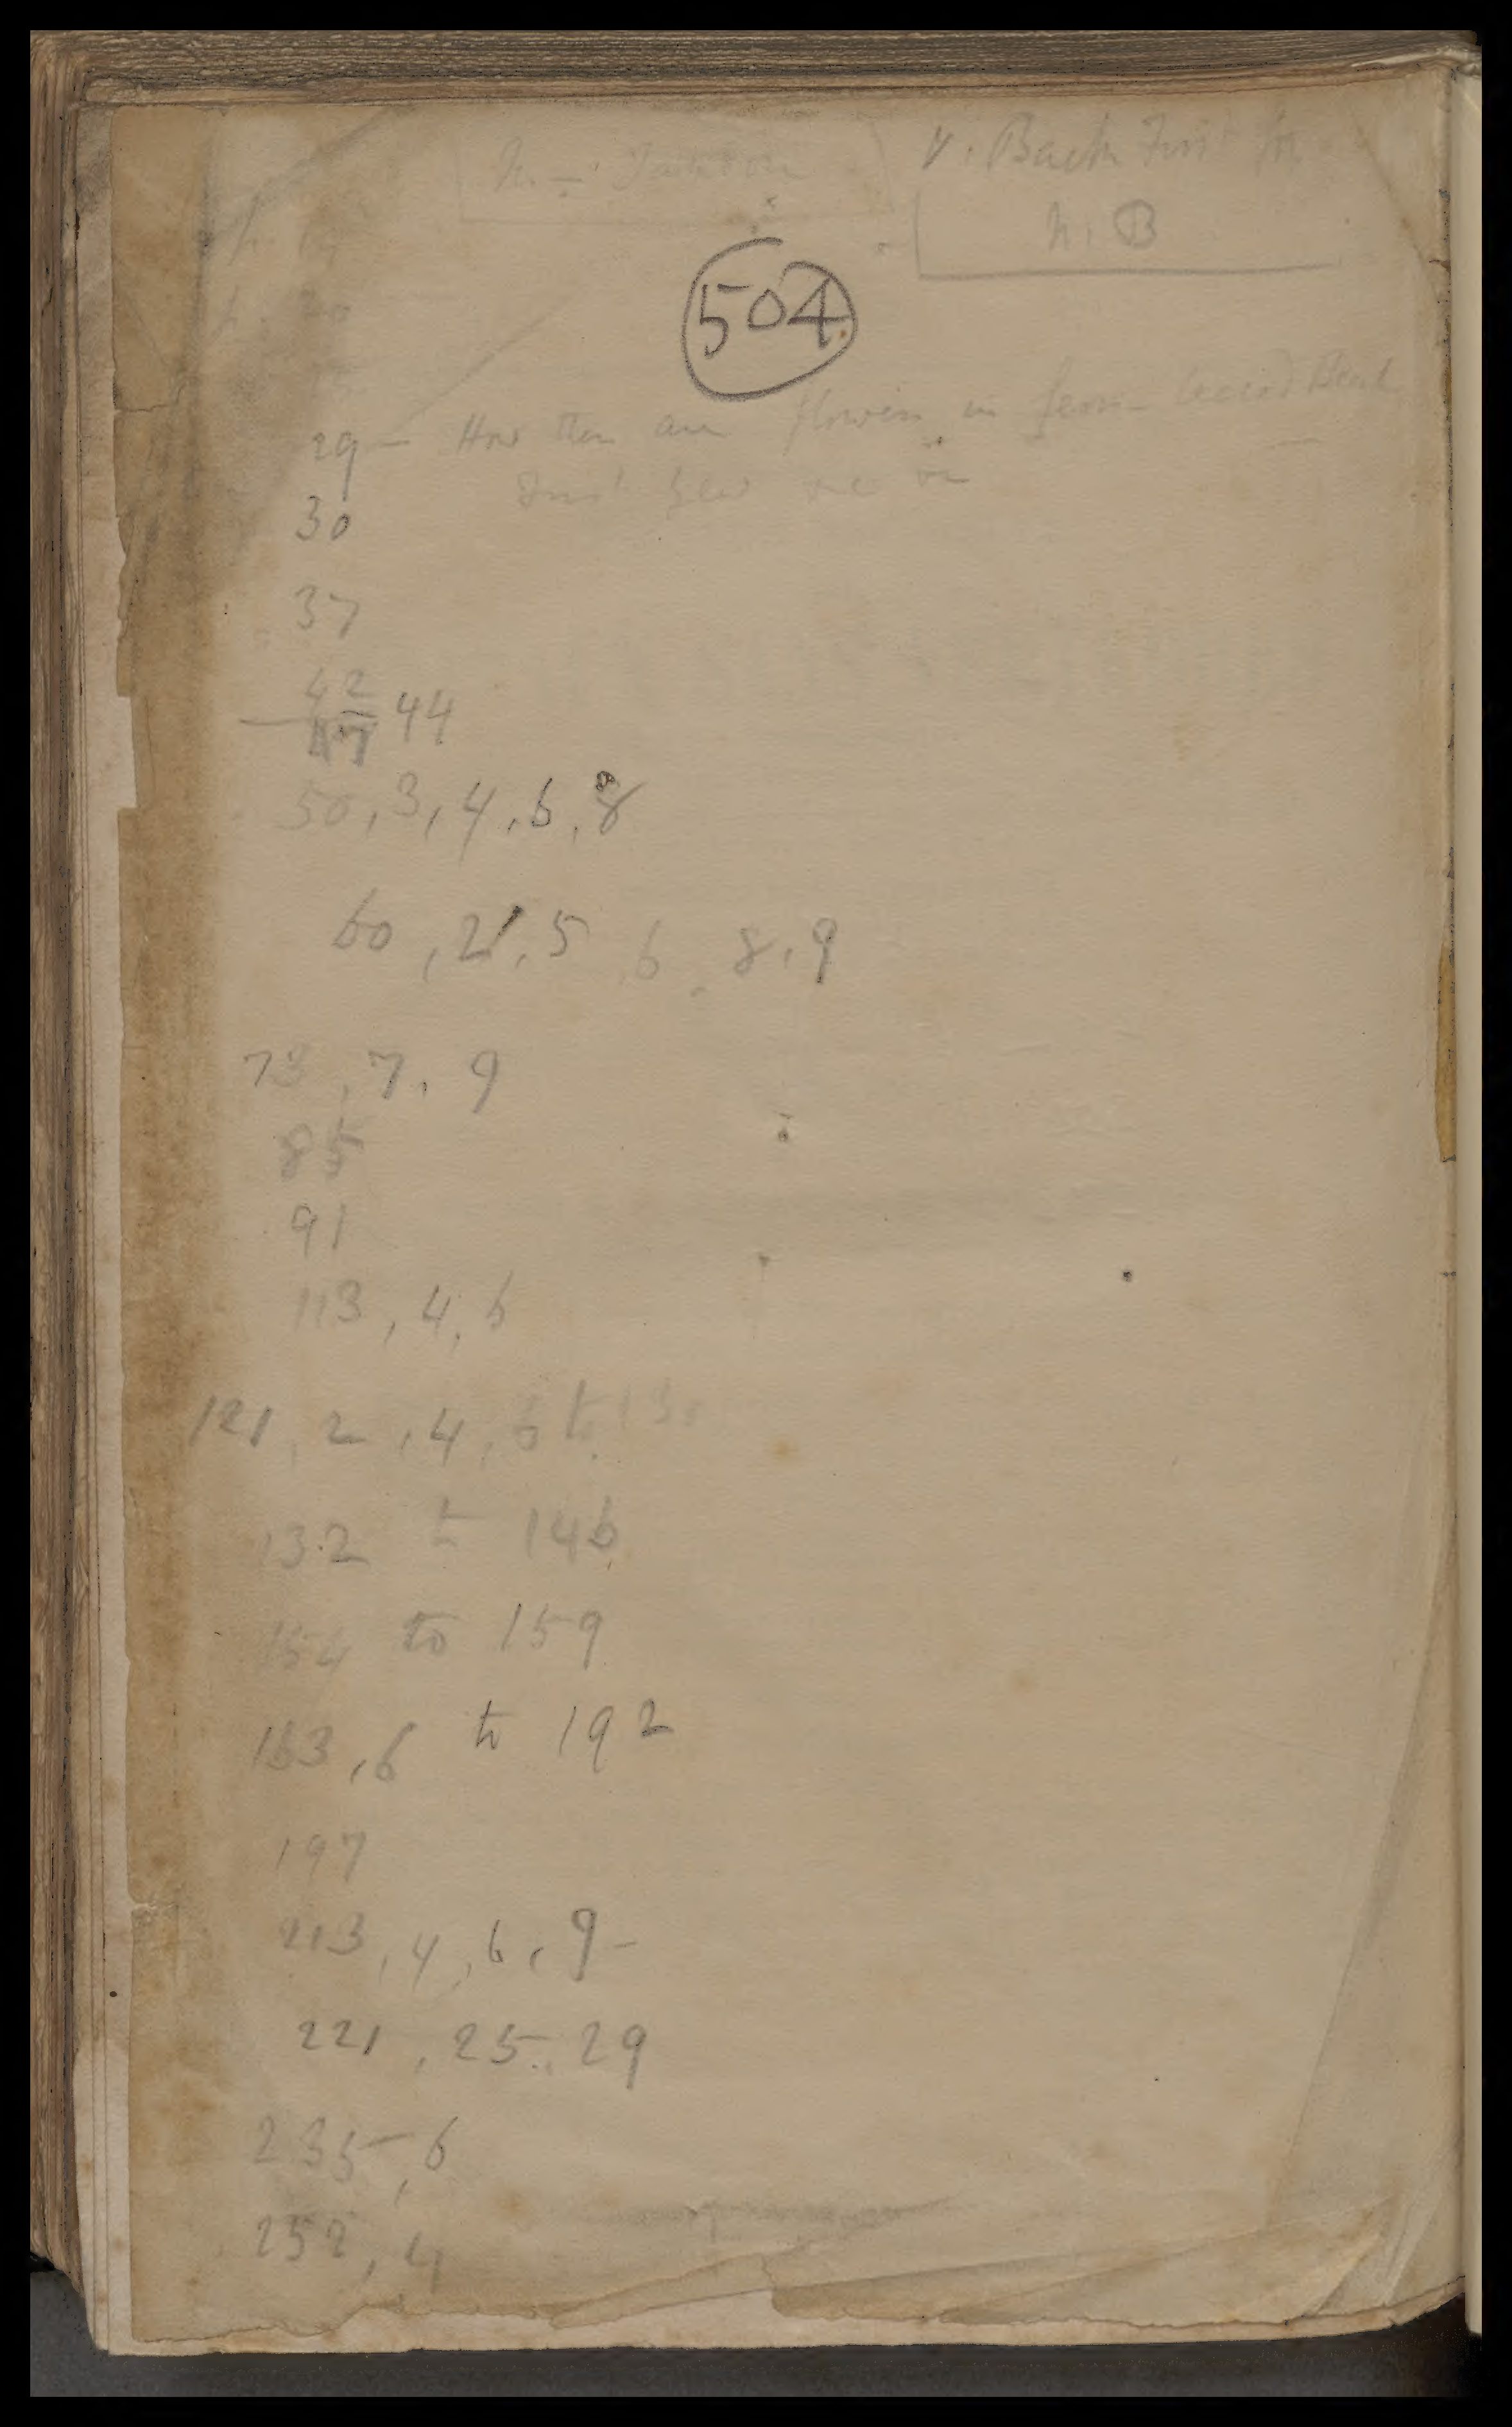 V. Back
N. B
504
29 — How then are flowers in fern-leaved Beech
30
37
42
47 44
50, 3, 4, 6, 8
60, 2, 5 6. 8, 9
73, 7, 9
85
91
113, 4, 6
121, 2, 4, 6 to 130
132 to 146
154 to 159
163, 6 to 192
197
213, 4, 6, 9 -
221, 25, 29
235, 6
252, 4